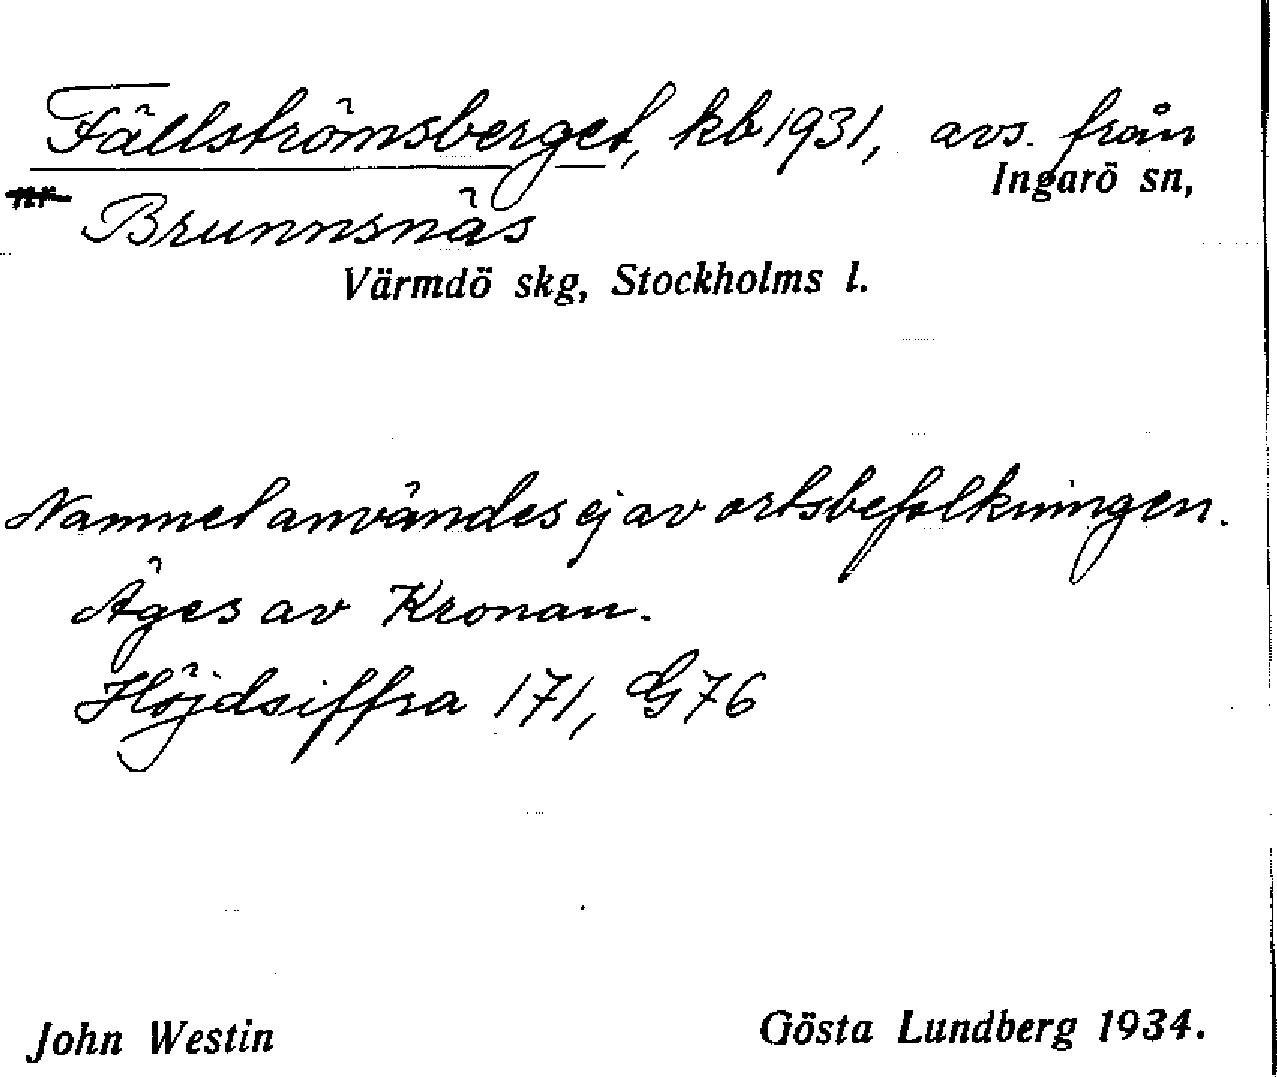 Fällströmsberget, kb 1931, avs. från
Ingarö sn,
Brunnsnäs
Värmdö skg, Stockholms l.
Namnet användes ej av ortsbefolkningen.
Äges av Kronan.
Höjdsiffra 171, G76
John Westin
Gösta Lundberg 1934.